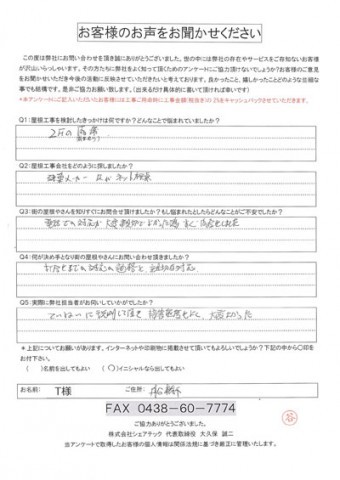 お客様のお声をお聞かせください
この度は弊社にお問い合わせを頂き誠にありがとうございました。世の中には弊社の存在やサービスをご存知ないお客様
が沢山いらっしゃいます。その方たちに弊社をよく知って頂くためのアンケートにご協力頂けないでしょうか?お客様のご意見
をお聞かせいただき今後の活動に反映させていただきたいと考えております。良かったこと、嬉しかったことのような些細な
事でも結構です。是非ご協力お願い致します。(出来るだけ具体的に書いて頂ければ幸いです)
*本アンケートにご記入いただいたお客様には工事ご用命時に工事金額(税抜き)の2%をキャッシュバックさせていただきます。
Q1:屋根工事を検討したきっかけは何ですか?どんなことで悩まれていましたか?
Q2:屋根工事会社をどのように探しましたか?
ネット検索
Q3:街の屋根やさんを知りすぐにお問合せ頂けましたか?もし悩まれたとしたらどんなことがご不安でしたか?
Q4:何が決め手となり街の屋根やさんにお問い合わせ頂きましたか?
Q5:実際に弊社担当者がお伺いしていかがでしたか?
ていねいに説明して頂き
*上記についてお願いがあります。インターネットや印刷物に掲載させて頂いてもよろしいでしょうか?下記の中から〇印を
お付下さい。
( )名前を出してもよい (○)イニシャルなら出してもよい
お名前: T様 ご住所:
FAX 0438-60-7774
ご協力ありがとうございました。
株式会社シェアテック 代表取締役 大久保 誠二
当アンケートで取得したお客様の個人情報は関係法規に基づき厳正に管理いたします。